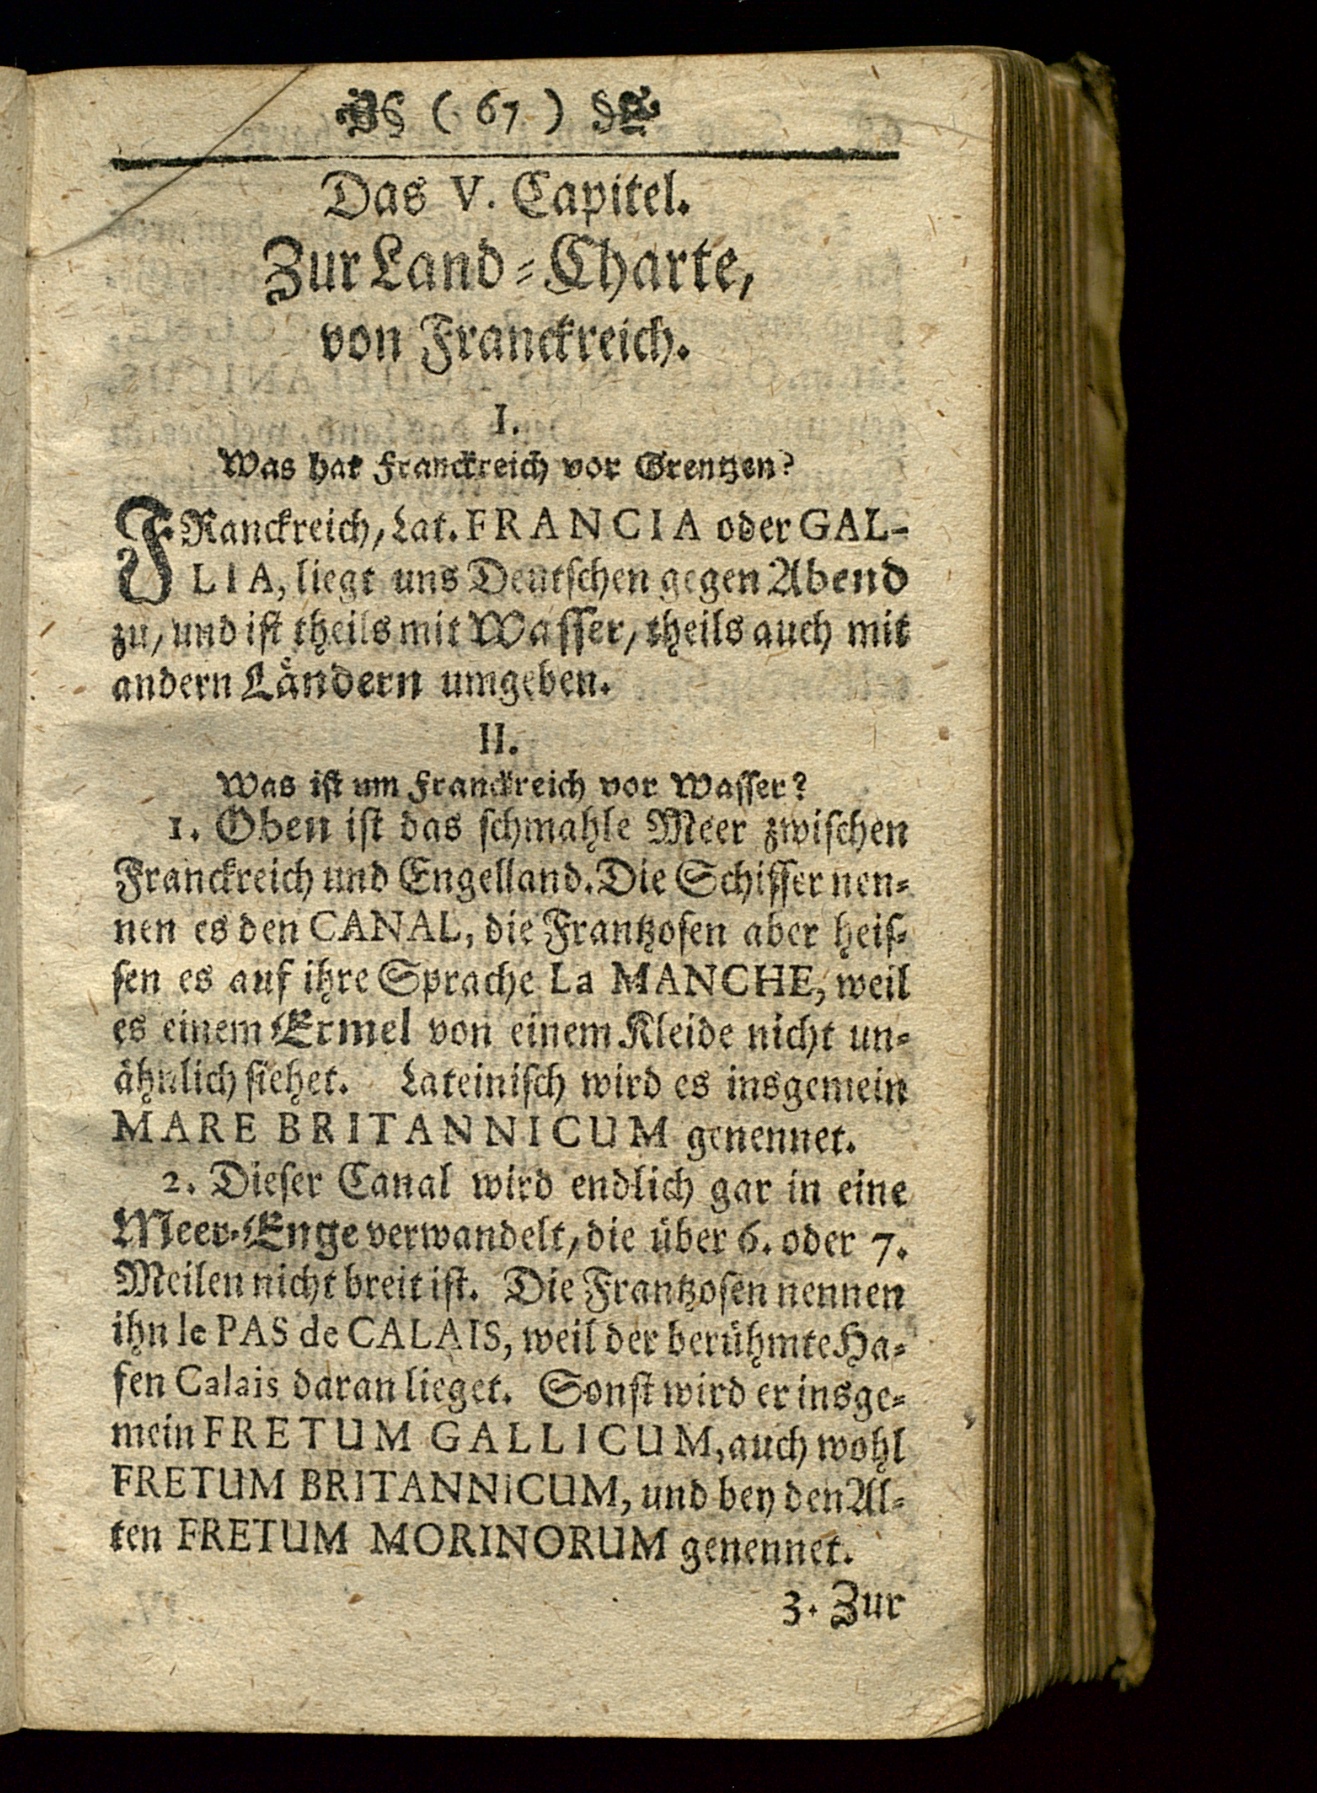 ( 67 )
Das V. Capitel.
Zur Land-Charte,
von Franckreich.
I.
Was hat Franckreich vor Grentzen?
FRanckreich, Lat. FRANCIA oder GAL-
LIA, liegt uns Deutschen gegen Abend
zu, und ist theils mit Wasser, theils auch mit
andern Ländern umgeben.
II.
Was ist um Franckreich vor Wasser?
1. Oben ist das schmahle Meer zwischen
Franckreich und Engelland. Die Schiffer nen-
nen es den CANAL, die Frantzosen aber heis-
sen es auf ihre Sprache La MANCHE, weil
es einem Ermel von einem Kleide nicht un-
ähnlich siehet. Lateinisch wird es insgemein
MARE BRITANNICUM genennet.
2. Dieser Canal wird endlich gar in eine
Meer-Enge verwandelt, die über 6. oder 7.
Meilen nicht breit ist. Die Frantzosen nennen
ihn le PAS de CALAIS, weil der berühmte Ha-
fen Calais daran lieget. Sonst wird er insge-
mein FRETUM GALLICUM, auch wohl
FRETUM BRITANNiCUM, und bey den Al-
ten FRETUM MORINORUM genennet.
3. Zur